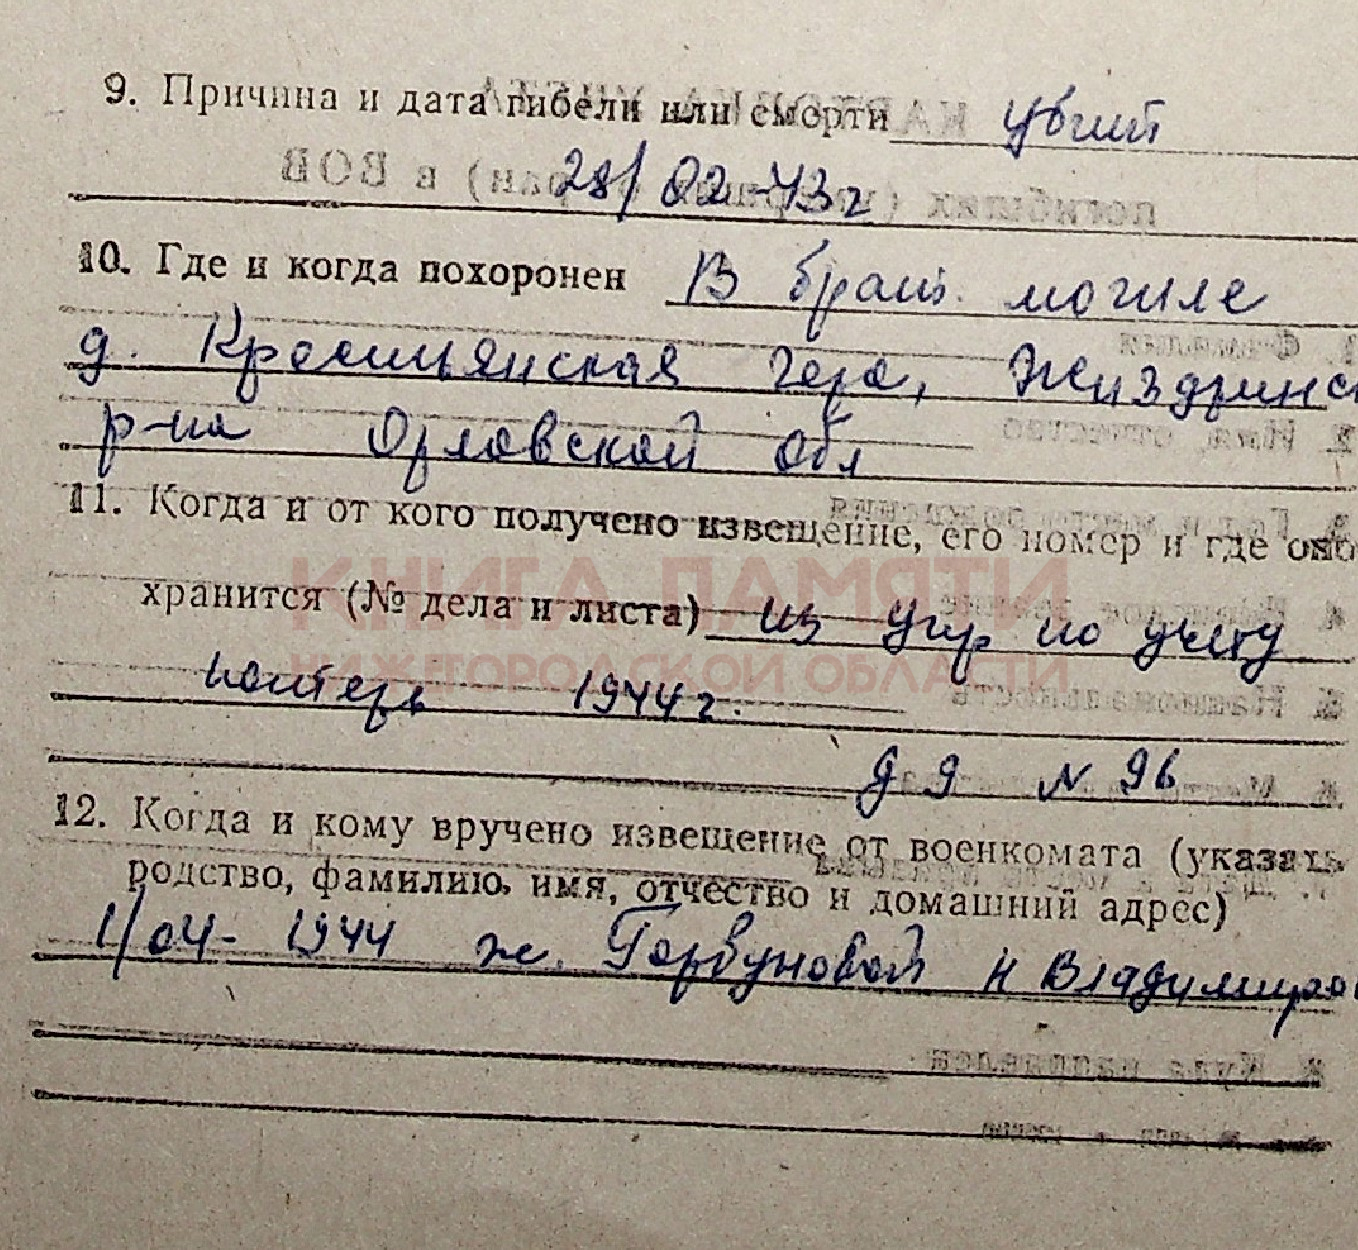 9. Причина и дата гибели или смерти убит
28/02-43г
10. Где и когда похоронен В брат. могиле
д. Крестьянская гора, Жиздринс
р-на Орловской обл
11. Когда и от кого получено извещение, его номер и где оно
хранится (№ дела и листа) из Упр по учету
потерь 1944г.
д 9 N 96
12. Когда и кому вручено извещение от военкомата (указать
родство, фамилию, имя, отчество и домашний адрес)
1/04-1944 ж. Горбуновой Н Владимиро
КНИГА ПАМЯТИ
НИЖЕГОРОДСКОЙ ОБЛАСТИ